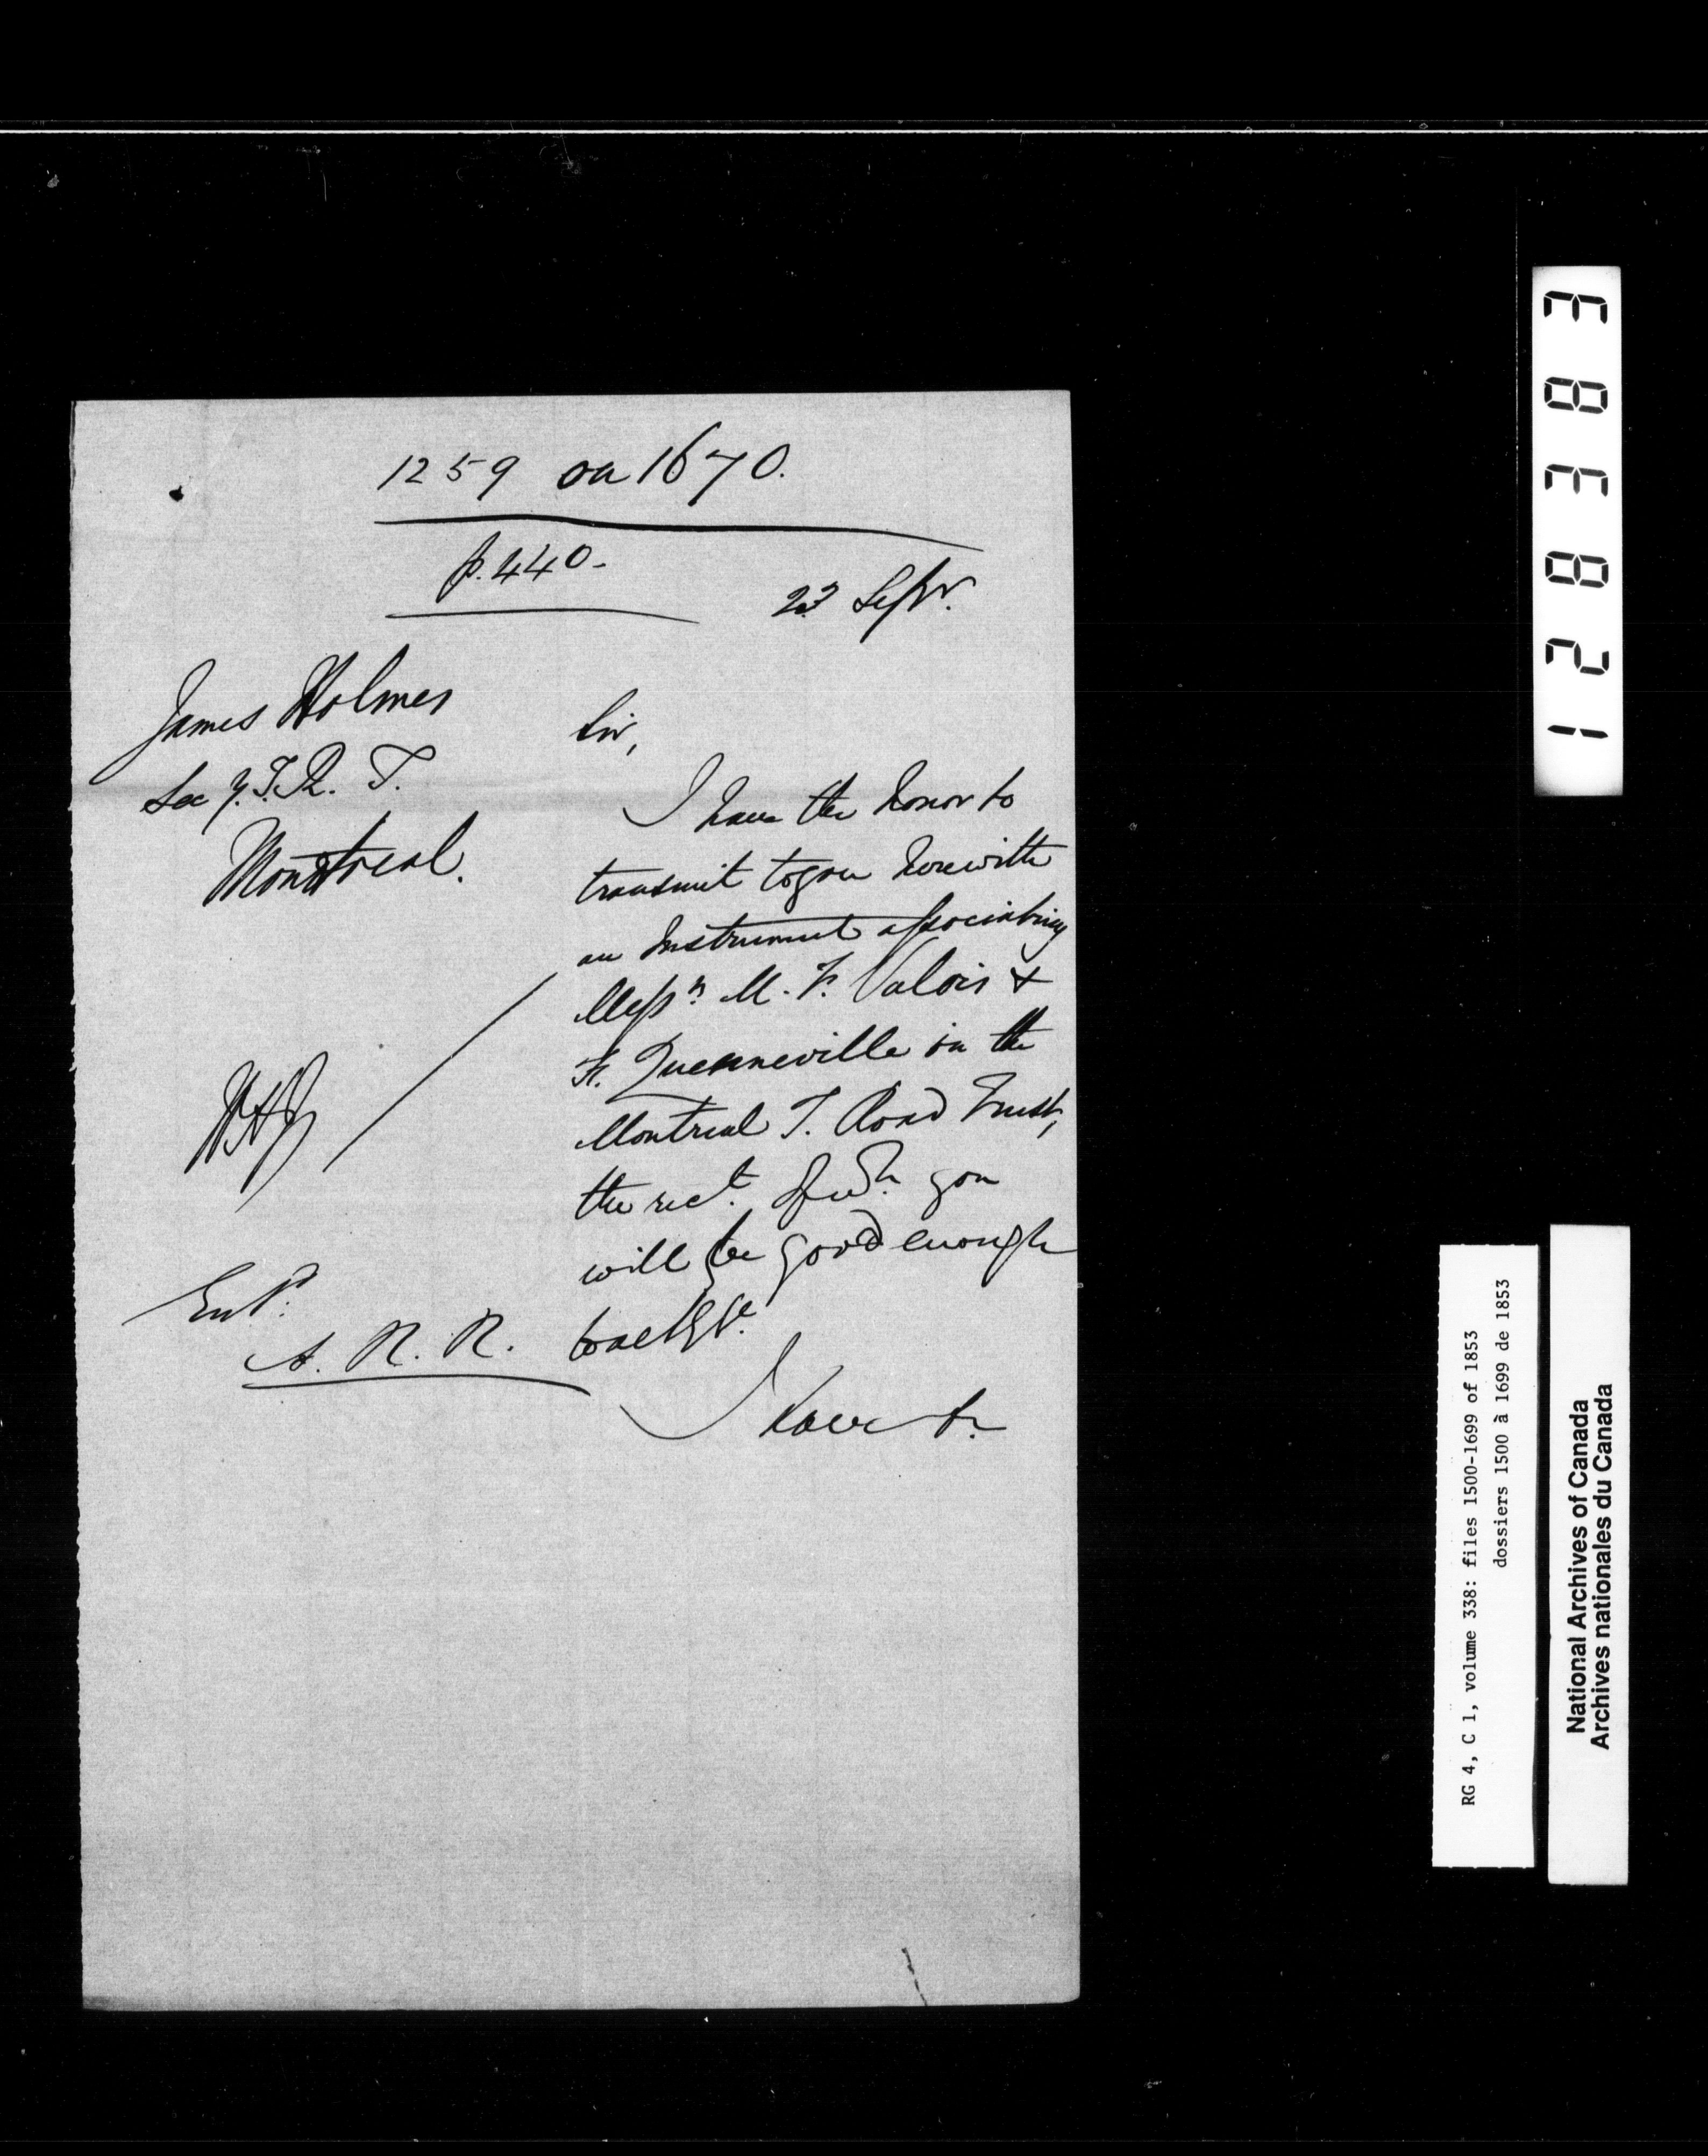 1259 on 1670.
p. 440-
23 Septr.
James Holmes
Secy. T. R. T.
Montreal.
Sir,
I have the honor to
transmit to you herewith
an Instrument associating
Messrs. M. F. Valois &
F. Quenneville in the
Montreal T. Road Trust,
the rect. of wh. you
will be good enough
to ackge.
I have &.
Entd.
A. R. R.
128383
RG 4, C 1, volume 338: files 1500-1699 of 1853
dossiers 1500 à 1699 de 1853
National Archives of Canada
Archives nationales du Canada